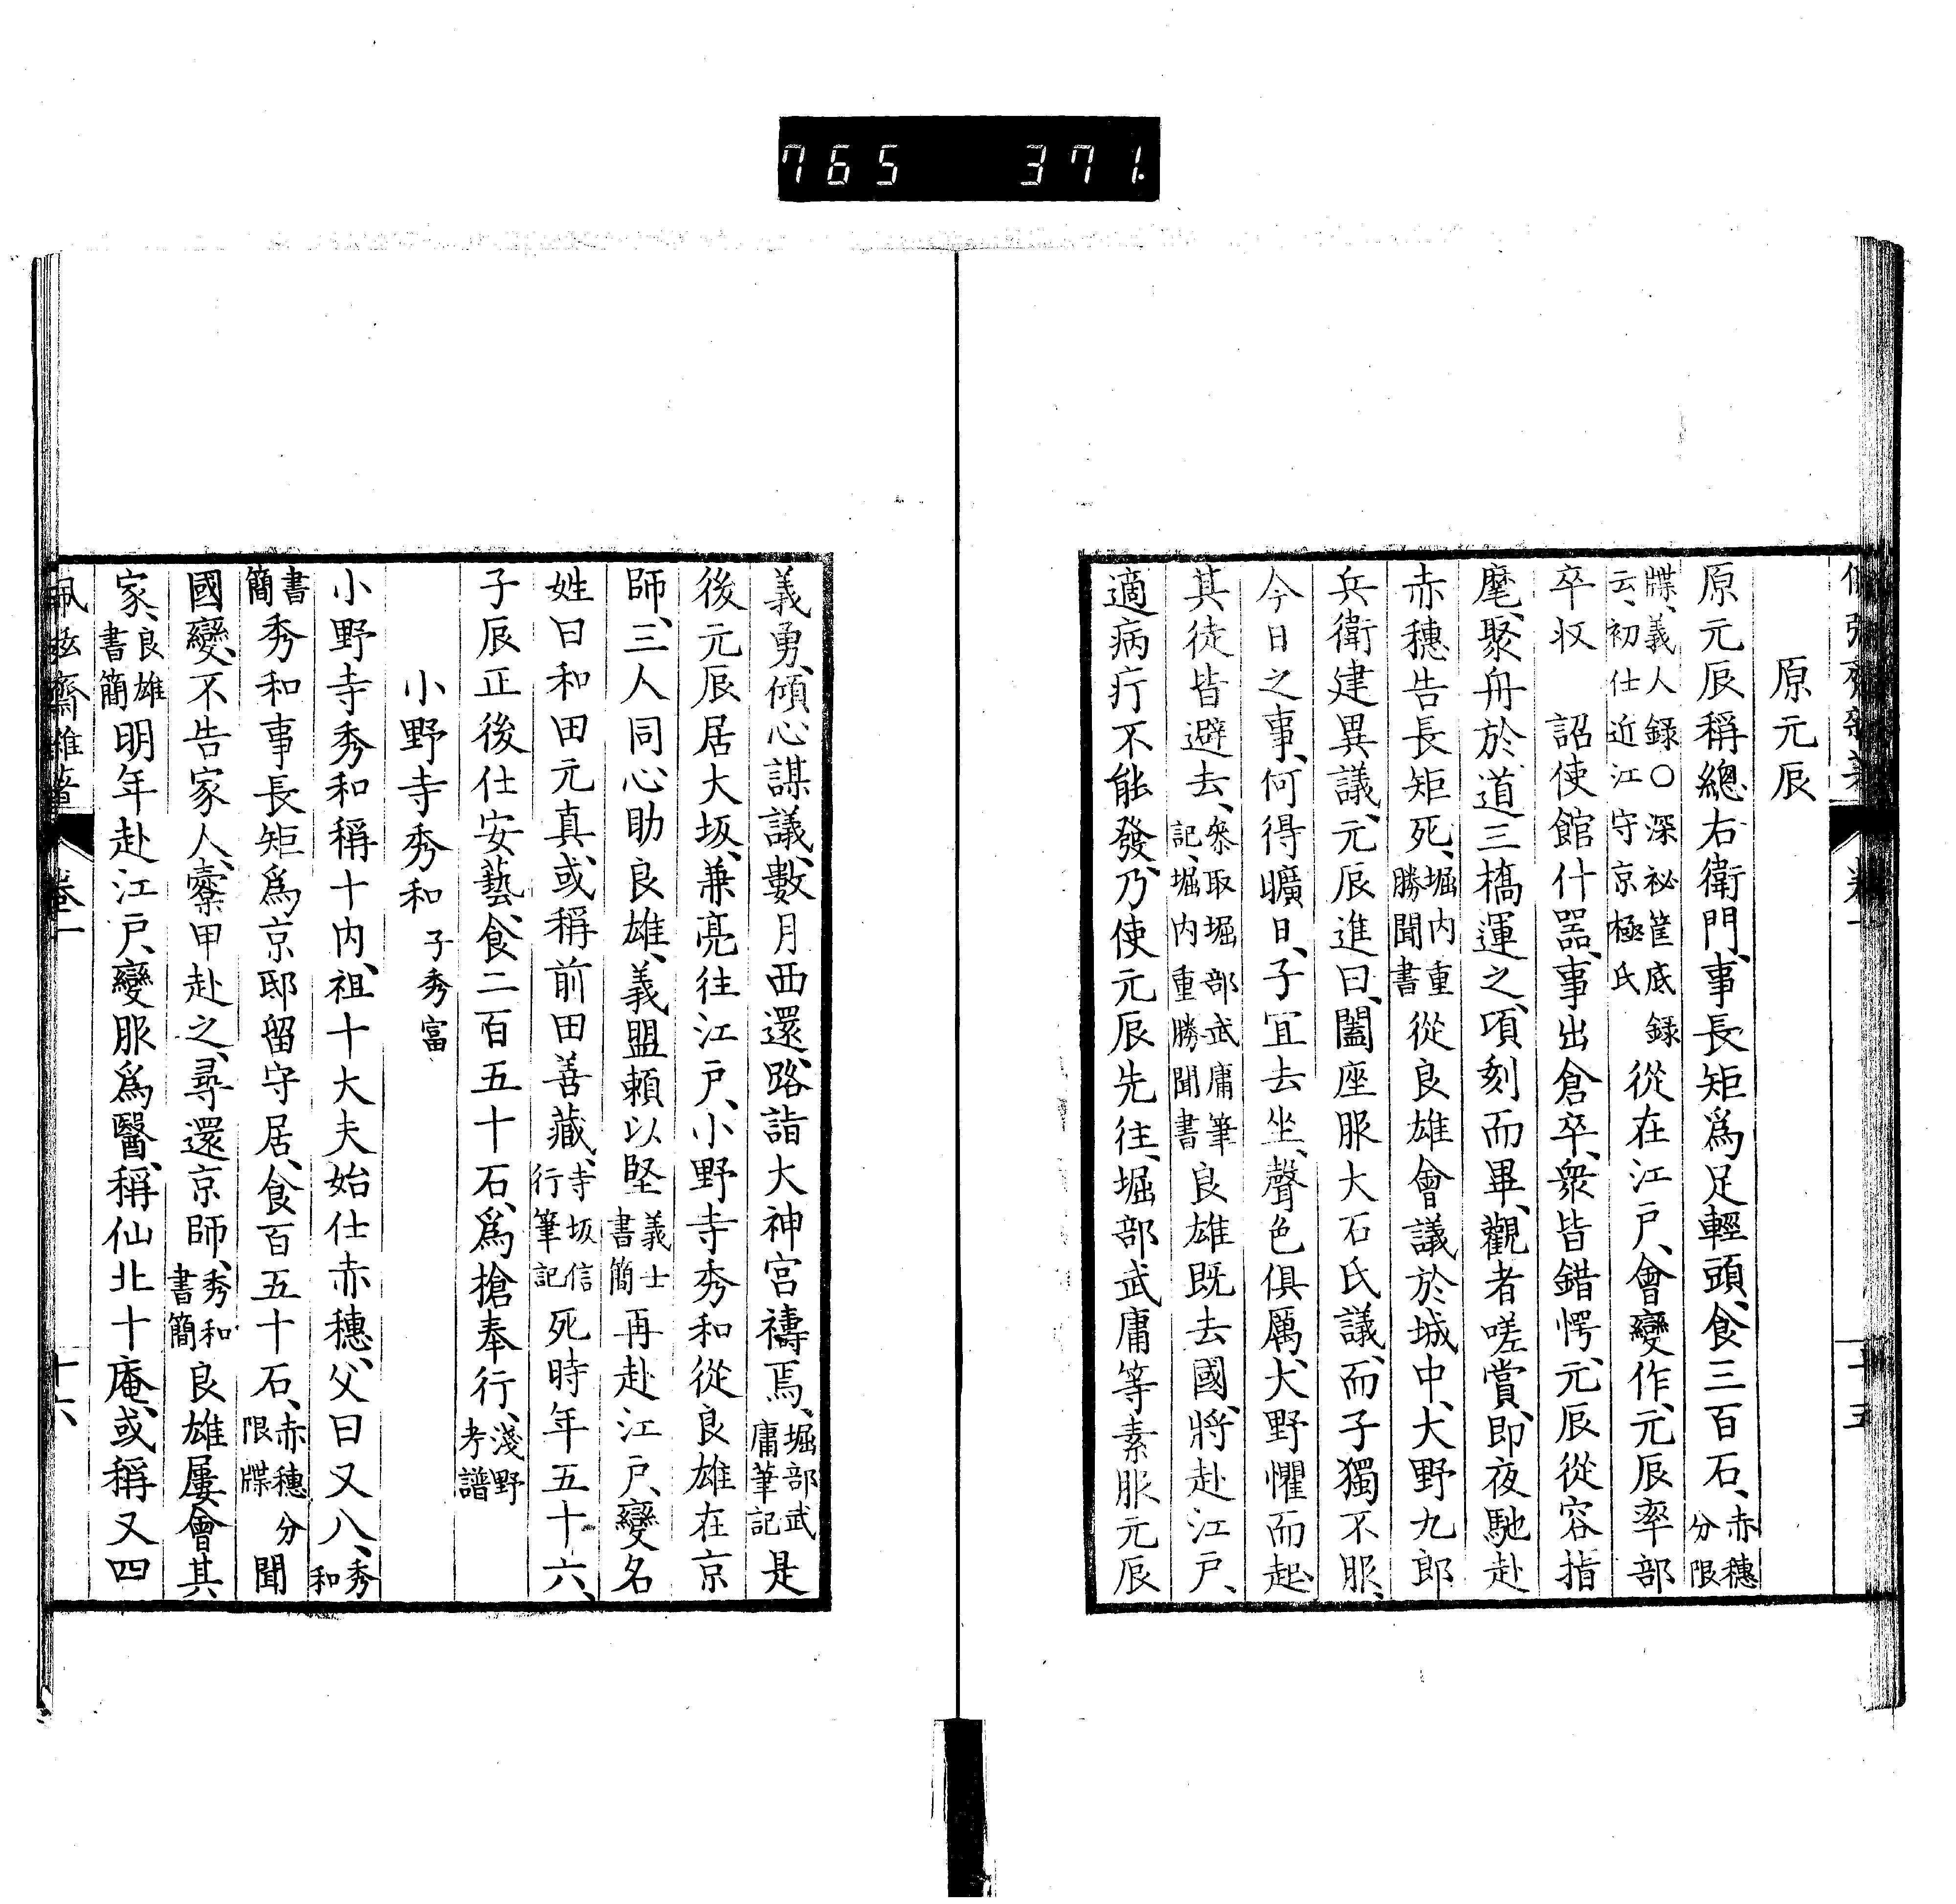 765 371.
原元辰
原元辰稱總右衛門、事長矩爲足輕頭、食三百石、赤穗分限
牒、義人録〇深祕筐底録云、初仕近江守京極氏從在江戸、會變作、元辰率部
卒收 詔使館什器、事出倉卒、衆皆錯愕、元辰從容指
麾、聚舟於道三橋運之、項刻而畢、觀者嗟賞、即夜馳赴
赤穗告長矩死、堀内重勝聞書從良雄會議於城中、大野九郎
兵衛建異議、元辰進曰、闔座服大石氏議、而子獨不服、
今日之事、何得曠日、子宜去坐、聲色俱厲、大野懼而起、
其徒皆避去、參取堀部武庸筆記、堀内重勝聞書良雄既去國、將赴江戸、
適病疔不能發、乃使元辰先往、堀部武庸等素服元辰
義勇、傾心謀議、數月西還、路詣大神宮禱焉、堀部武庸筆記是
後元辰居大坂、兼亮往江戸、小野寺秀和從良雄在京
師、三人同心助良雄、義盟頼以堅義士書簡再赴江戸、變名
姓曰和田元真、或稱前田善藏、寺坂信行筆記死時年五十六、
子辰正後仕安藝、食二百五十石、爲槍奉行、淺野考譜
小野寺秀和 子秀富
小野寺秀和稱十内、祖十大夫始仕赤穗、父曰又八、秀和
書簡秀和事長矩爲京邸留守居、食百五十石、赤穗分限牒聞
國變、不告家人、櫜甲赴之、尋還京師、秀和書簡良雄屢會其
家、良雄書簡明年赴江戸、變服爲醫、稱仙北十庵、或稱又四
佩弦齋雜著 卷一 十六